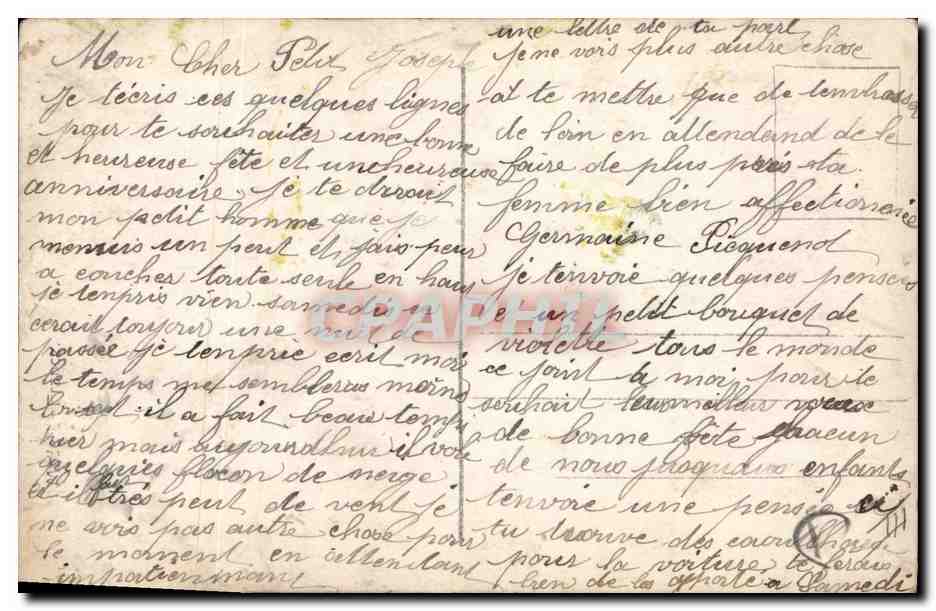 Mon Cher Petit Joseph
Je t'écris ces quelques lignes
pour te souhaiter une bonne
et heureuse fête et un heureuse
anniversaire je te dirait
mon petit homme que je
menuis un peut et jais peur
a coucher toute seule en haut
je tenpris vien samedi
cerait toujour une nui de
passée je tenprie ecrit moi
le temps me sembleras moins
il a fait beau temps
hier mais aujourdhui il
quelques flocon de neige
et il trés peut de vent je
ne vois pas autre chose pour
le moment en attendant
impatienmant
une lettre de ta part
je ne vois plus autre chose
a te mettre que de tembrasser
de loin en attendand de le
faire de plus près ta
femme bien affectionnée
Germaine Picquenot
je tenvoie quelques pensées
et un petit bouquet de
violette tous le monde
ce joint a moi pour te
souhait leur meilleur voeux
de bonne fête chacun
de nous jusquaux enfants
tenvoie une pensée ci
tu trouve des
pour la voiture te
bien de les apporté a Samedi
CPAPHIL